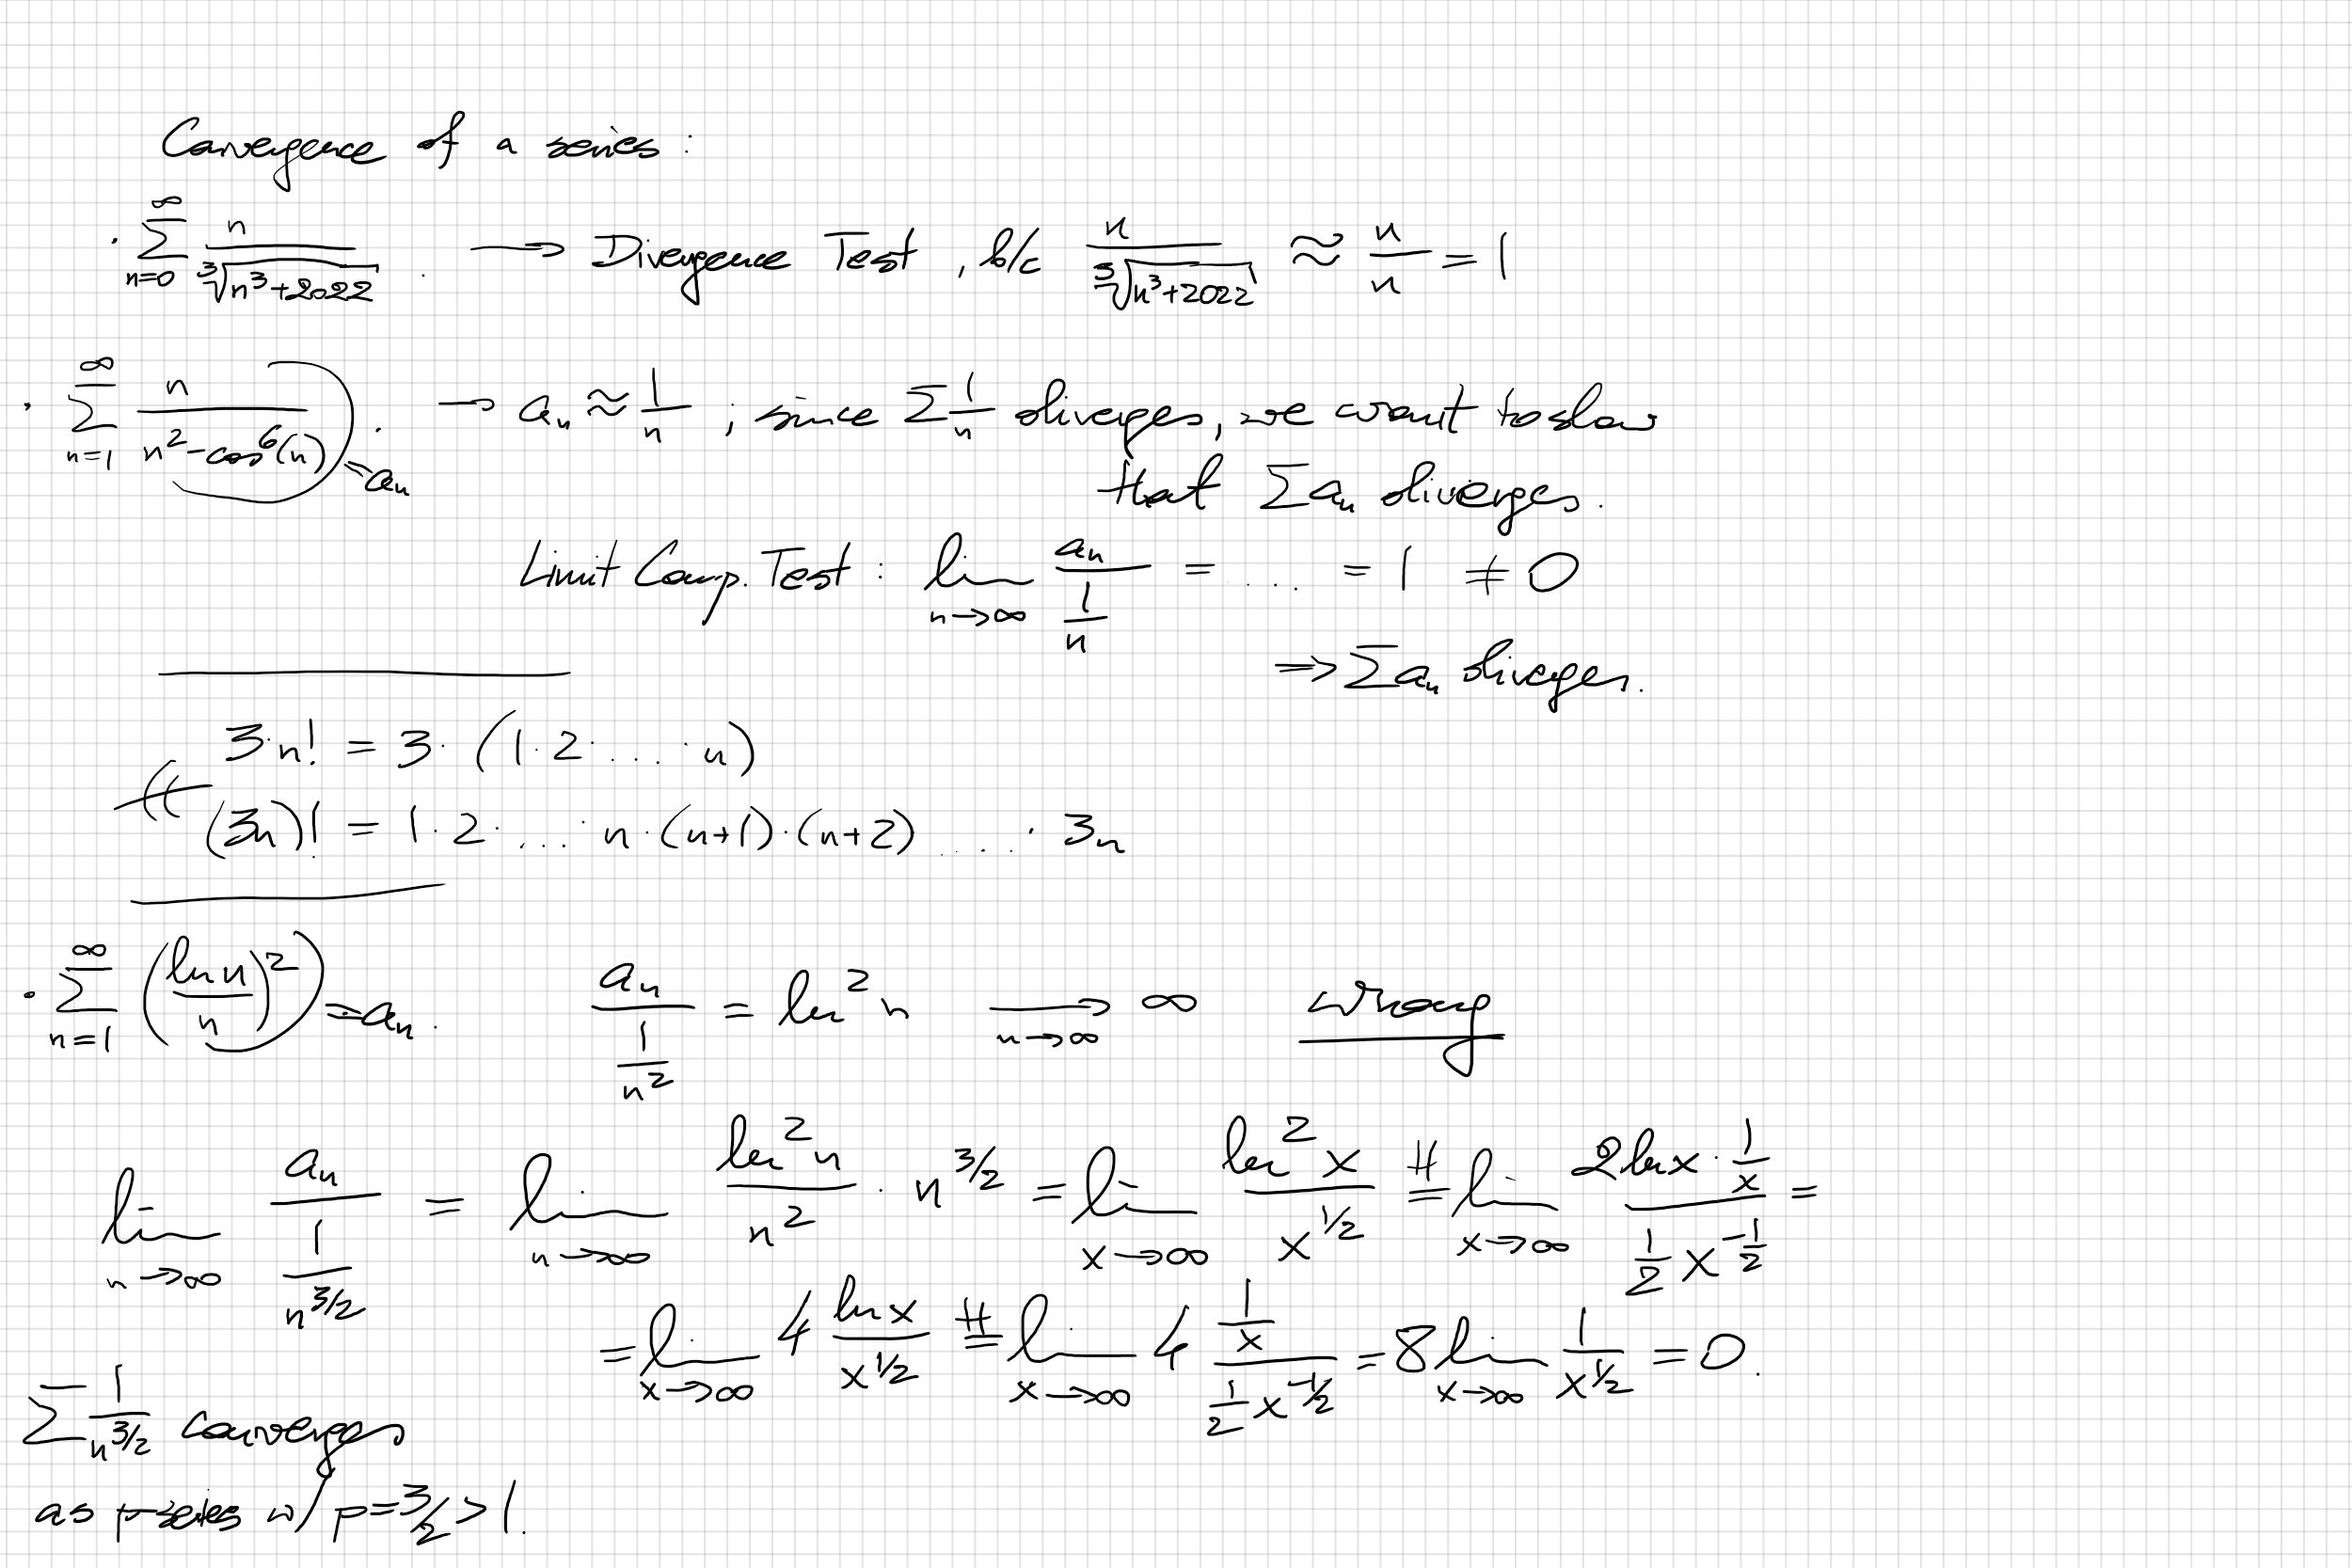 Convergence of a series:
· ∑_{n=0}^{∞} n/∛(n³+2022) . → Divergence Test, b/c n/∛(n³+2022) ≈ n/n = 1
· ∑_{n=1}^{∞} (n/(n²-cos⁶(n))) = aₙ . → aₙ ≈ 1/n ; since ∑ 1/n diverges, we want to show
that ∑ aₙ diverges.
Limit Comp. Test: lim_{n→∞} aₙ/(1/n) = ... = 1 ≠ 0
⇒ ∑ aₙ diverges.
3·n! = 3·(1·2·...·n)
(3n)! = 1·2·...·n·(n+1)·(n+2)·...·3n
· ∑_{n=1}^{∞} (ln n/n)² = aₙ. aₙ/(1/n²) = ln² n →_{n→∞} ∞ wrong
lim_{n→∞} aₙ/(1/n^{3/2}) = lim_{n→∞} ln² n/n² · n^{3/2} = lim_{x→∞} ln² x/x^{1/2} =^{H} lim_{x→∞} (2 ln x · 1/x)/(1/2 x^{-1/2}) =
= lim_{x→∞} 4 ln x/x^{1/2} =^{H} lim_{x→∞} 4 (1/x)/(1/2 x^{-1/2}) = 8 lim_{x→∞} 1/x^{1/2} = 0.
∑ 1/n^{3/2} converges
as p-series w/ p = 3/2 > 1.